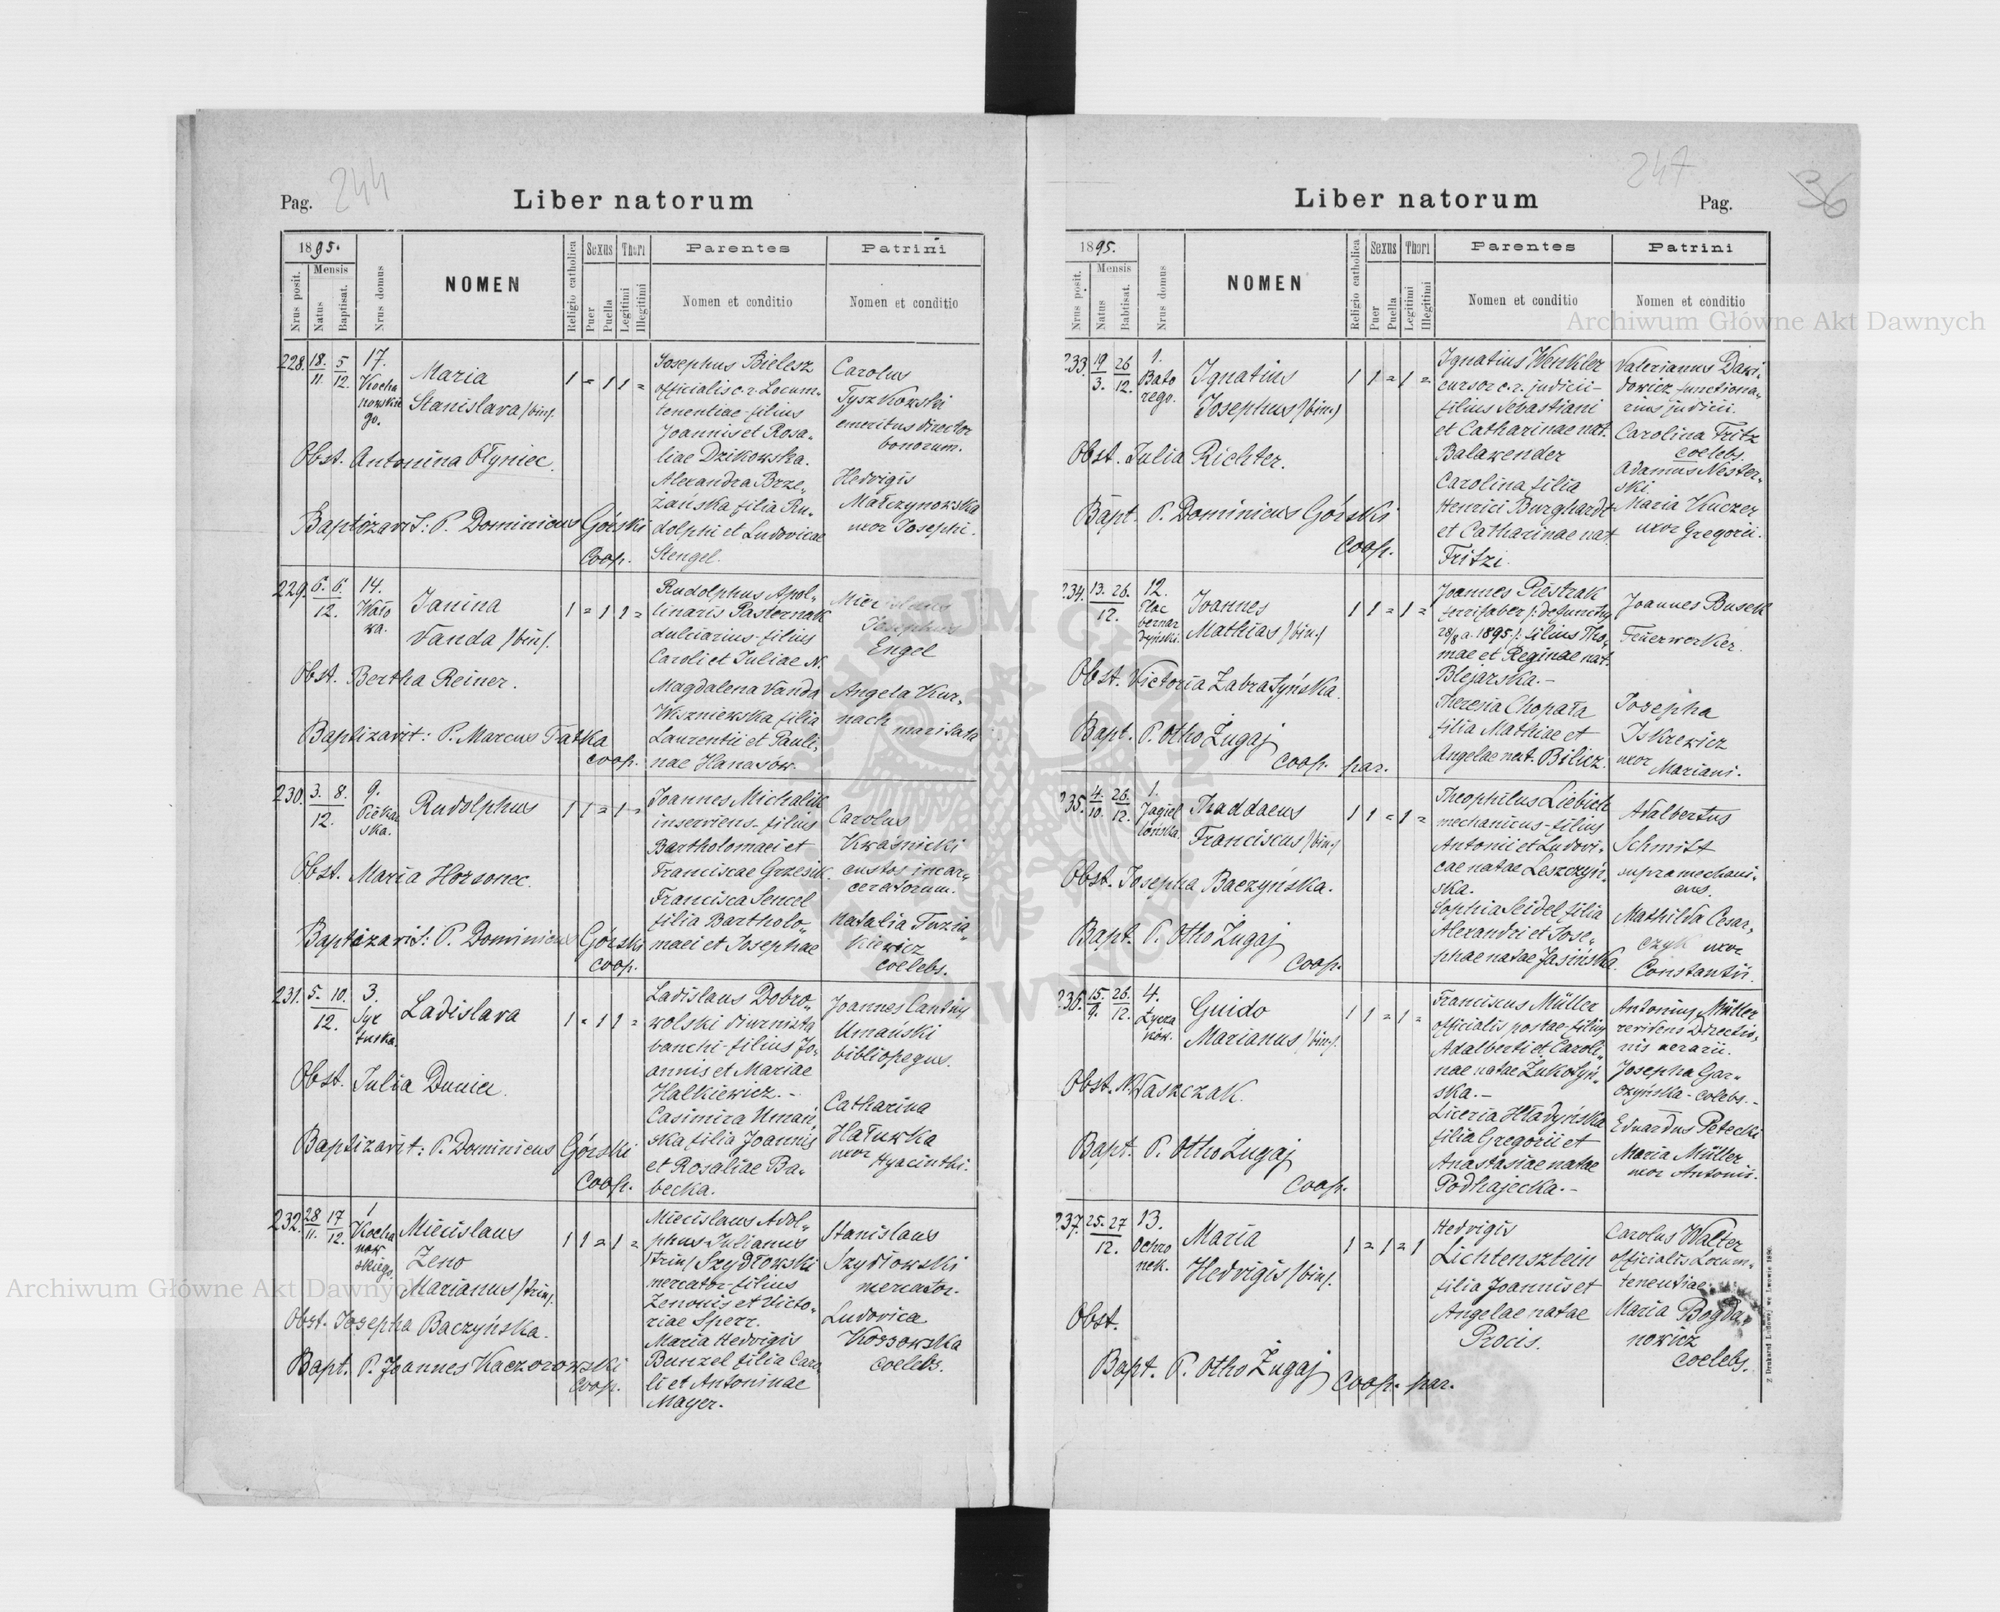 244
Pag.
Liber natorum
1895.
Nrus posit.
Mensis
Natus
Baptisat.
Nrus domus
NOMEN
Religio catholica
Sexus
Puer
Puella
Thori
Legitimi
Illegitimi
Parentes
Nomen et conditio
Patrini
Nomen et conditio
228.
18.
11.
5
12.
17.
Kocha
nowskie
go.
Maria
Stanislava /bin/.
1 = 1 1 =
Obst. Antonina Ołyniec.
Baptizavit: P. Dominicus Górski
Coop.
Josephus Bielesz
officialis c. r. Locum-
tenentiae filius
Joannis et Rosa-
liae Dzikowska.
Alexandra Brze-
żańska filia Ru-
dolphi et Ludovicae
Stengel.
Carolus
Tyszkowski
emeritus director
bonorum.
Hedvigis
Małczynowska
uxor Josephi.
229.
6. 6.
12.
14.
Wało
wa.
Janina
Vanda /bin/.
1 = 1 1 =
Obst. Bertha Reiner.
Baptizavit: P. Marcus Fatka
coop.
Rudolphus Apol-
linaris Pasternak
dulciarius - filius
Caroli et Juliae N.
Magdalena Vanda
Wiszniewska filia
Laurentii et Pauli-
nae Hanasów.
Miecislaus
Josephus
Engel
Angela Kur-
nach
maritata
230.
3. 8.
12.
9.
Piekar
ska.
Rudolphus
1 1 = 1 =
Obst. Maria Horsonec.
Baptizavit: P. Dominicus Górski
coop.
Joannes Michalik
inserviens - filius
Bartholomaei et
Franciscae Grzesik.
Francisca Sencel
filia Bartholo-
maei et Josephae
Carolus
Kwaśnicki
custos incar-
ceratorum.
Natalia Tuzia-
kiewicz
coelebs.
231.
5. 10.
12.
3.
Syx
tuska.
Ladislava
1 = 1 1 =
Obst. Julia Dunia.
Baptizavit: P. Dominicus Górski
Coop.
Ladislaus Dobro-
wolski diurnista
banchi - filius Jo-
annis et Mariae
Halkiewicz. -
Casimira Umań-
ska filia Joannis
et Rosaliae Ba-
becka.
Joannes Cantius
Umański
bibliopegus.
Catharina
Hałuwka
uxor
Hyacinthi.
232.
28
11.
17
12.
1
Kocha
now
skiego.
Miecislaus
Zeno
Marianus /trin/.
1 1 = 1 =
Obst. Josepha Baczyńska.
Bapt. P. Joannes Kaczorowski
Coop.
Miecislaus Adol-
phus Julianus
/trin/ Szydłowski
mercator - filius
Zenonis et Victo-
riae Sperr.
Maria Hedvigis
Bunzel filia Caro-
li et Antoninae
Mayer.
Stanislaus
Szydłowski
mercator.
Ludovica
Kossowska
coelebs.
247
36
Liber natorum
Pag.
1895.
Nrus posit.
Mensis
Natus
Babtisat.
Nrus domus
NOMEN
Religio catholica
Sexus
Puer
Puella
Thori
Legitimi
Illegitimi
Parentes
Nomen et conditio
Patrini
Nomen et conditio
233.
19
3.
26
12.
1.
Bato
rego.
Ignatius
Josephus /bin./
1 1 = 1 =
Obst. Julia Richter.
Bapt. P. Dominicus Górski
Coop.
Ignatius Wenkler
cursor c. r. judicii -
filius Sebastiani
et Catharinae nat.
Balawender
Carolina filia
Henrici Burghardt
et Catharinae nat.
Fritzi.
Valerianus Dawi-
dowicz functiona-
rius judicii.
Carolina Fritz
coelebs.
Adamus Nester-
ski.
Maria Kuczer
uxor Gregorii.
234.
13. 26.
12.
12.
Plac
bernar
dyński.
Joannes
Mathias /bin./
1 1 = 1 =
Obst. Victoria Zabratyńska.
Bapt. P. Otho Zugaj
Coop. par.
Joannes Piestrak
ferrifaber /: defunctus
28/8 a. 1895 :/ filius Tho-
mae et Reginae nat.
Blejarska. -
Theresia Chopata
filia Mathiae et
Angelae nat. Bilicz.
Joannes Busek
Feuerwerker.
Josepha
Iskrewicz
uxor
Mariani.
235.
4.
10.
26.
12.
1.
Jagiel
lońska.
Thaddaeus
Franciscus /bin./
1 1 = 1 =
Obst. Josepha Baczyńska.
Bapt. P. Otho Zugaj
Coop.
Theophilus Liebich
mechanicus - filius
Antonii et Ludovi-
cae natae Leszczyń-
ska.
Sophia Seidel filia
Alexandri et Jose-
phae natae Jasińska.
Adalbertus
Schmitt
supramechani-
cus.
Mathilda Cesar-
czyk uxor
Constantii.
236.
15.
9.
26.
12.
4.
Łycza
kow.
Guido
Marianus /bin/.
1 1 = 1 =
Obst. N. Waszczak.
Bapt. P. Otho Zugaj
Coop.
Franciscus Müller
officialis postae - filius
Adalberti et Caroli-
nae natae Zukotyń-
ska. -
Liceria Hładyńska
filia Gregorii et
Anastasiae natae
Podhajecka. -
Antonius Müller
revidens Directio-
nis aerarii.
Josepha Gar-
czyńska - colebs. -
Eduardus Petecki
Maria Müller
uxor Antonii.
237.
25. 27
12.
13.
Ochro
nek.
Maria
Hedvigis /bin/.
1 = 1 = 1
Obst.
Bapt. P. Otho Zugaj
Coop. par.
Hedvigis
Lichtensztein
filia Joannis et
Angelae natae
Procis.
Carolus Walter
officialis Locum-
tenentiae.
Maria Bogda-
nowicz
coelebs.
Z Drukarni Ludowej we Lwowie
Archiwum Główne Akt Dawnych
Archiwum Główne Akt Dawnych